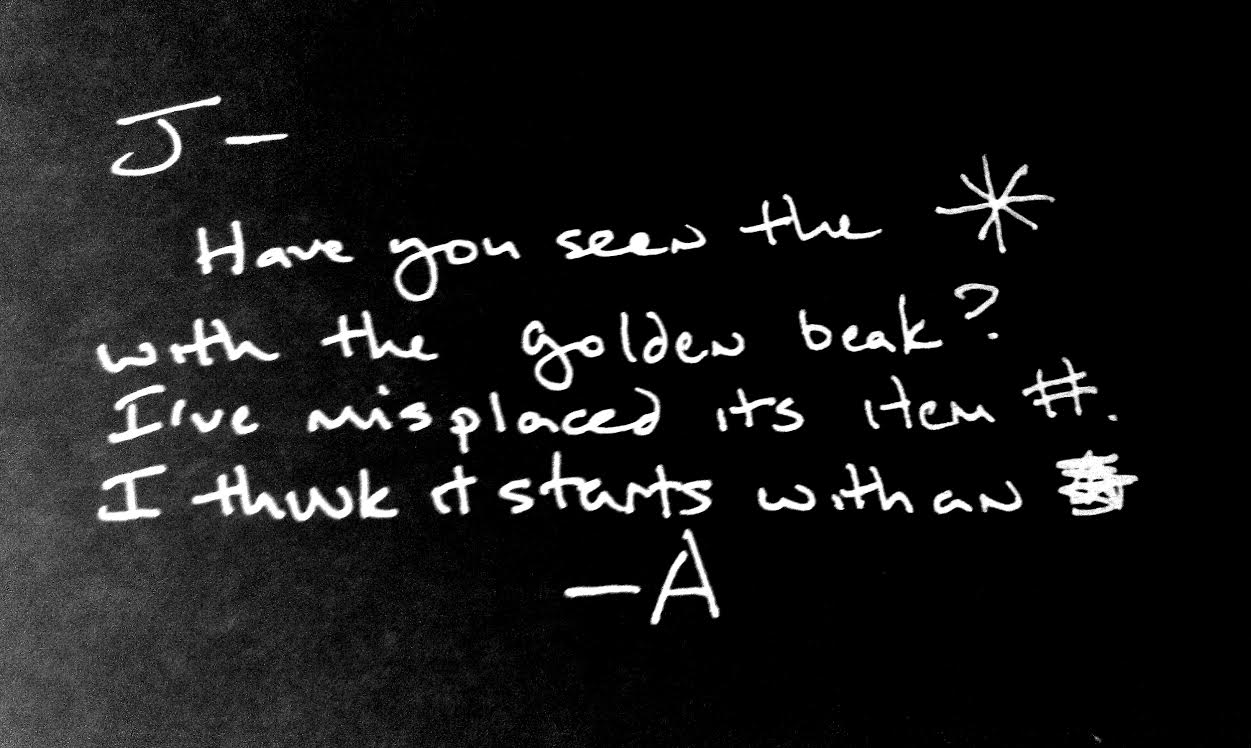 J-
Have you seen the *
with the golden beak?
I've misplaced its item #.
I think it starts with an
-A